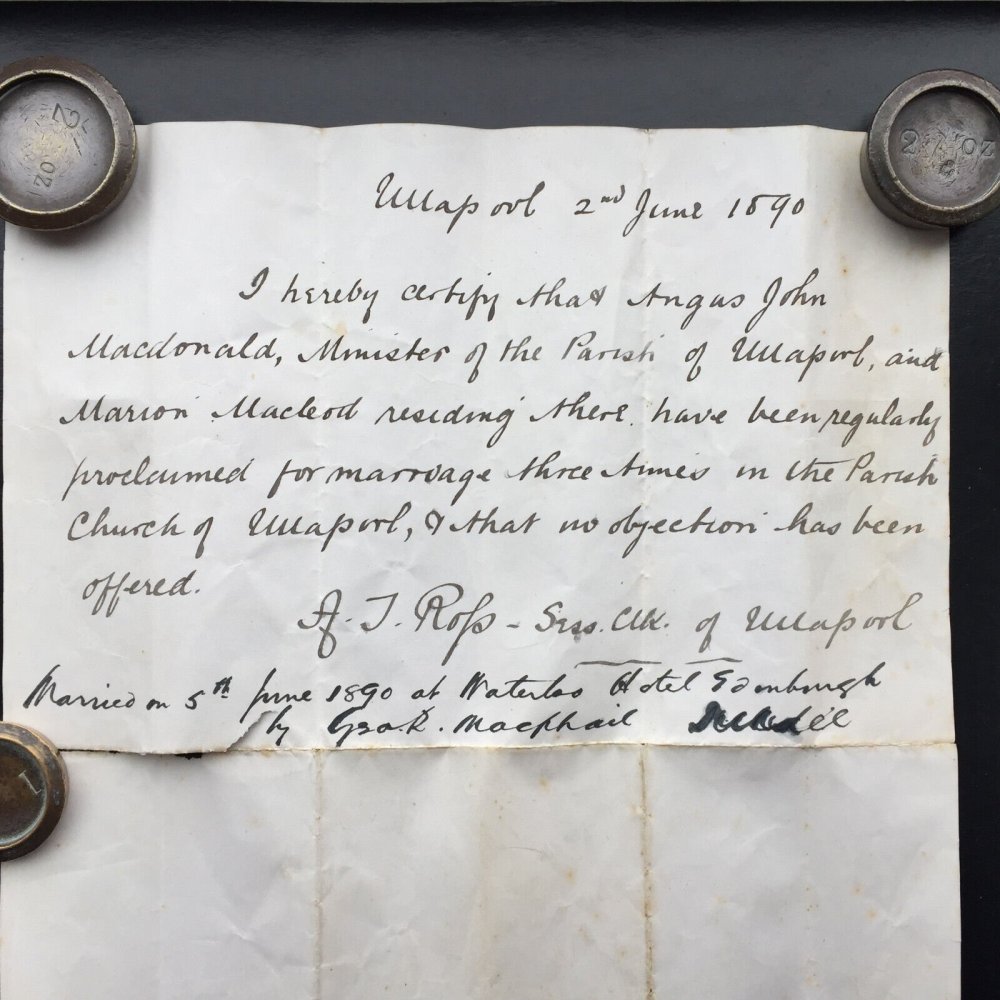 Ullapool 2nd June 1890
I hereby certify that Angus John
Macdonald, Minister of the Parish of Ullapool, and
Marion Macleod residing there have been regularly
proclaimed for marriage three times in the Parish
Church of Ullapool, & that no objection has been
offered.
A. J. Ross - Sess. Clk. of Ullapool
Married on 5th June 1890 at Waterloo Hotel Edinburgh
by Geo. R. Macphail
2 OZ
2 OZ
1